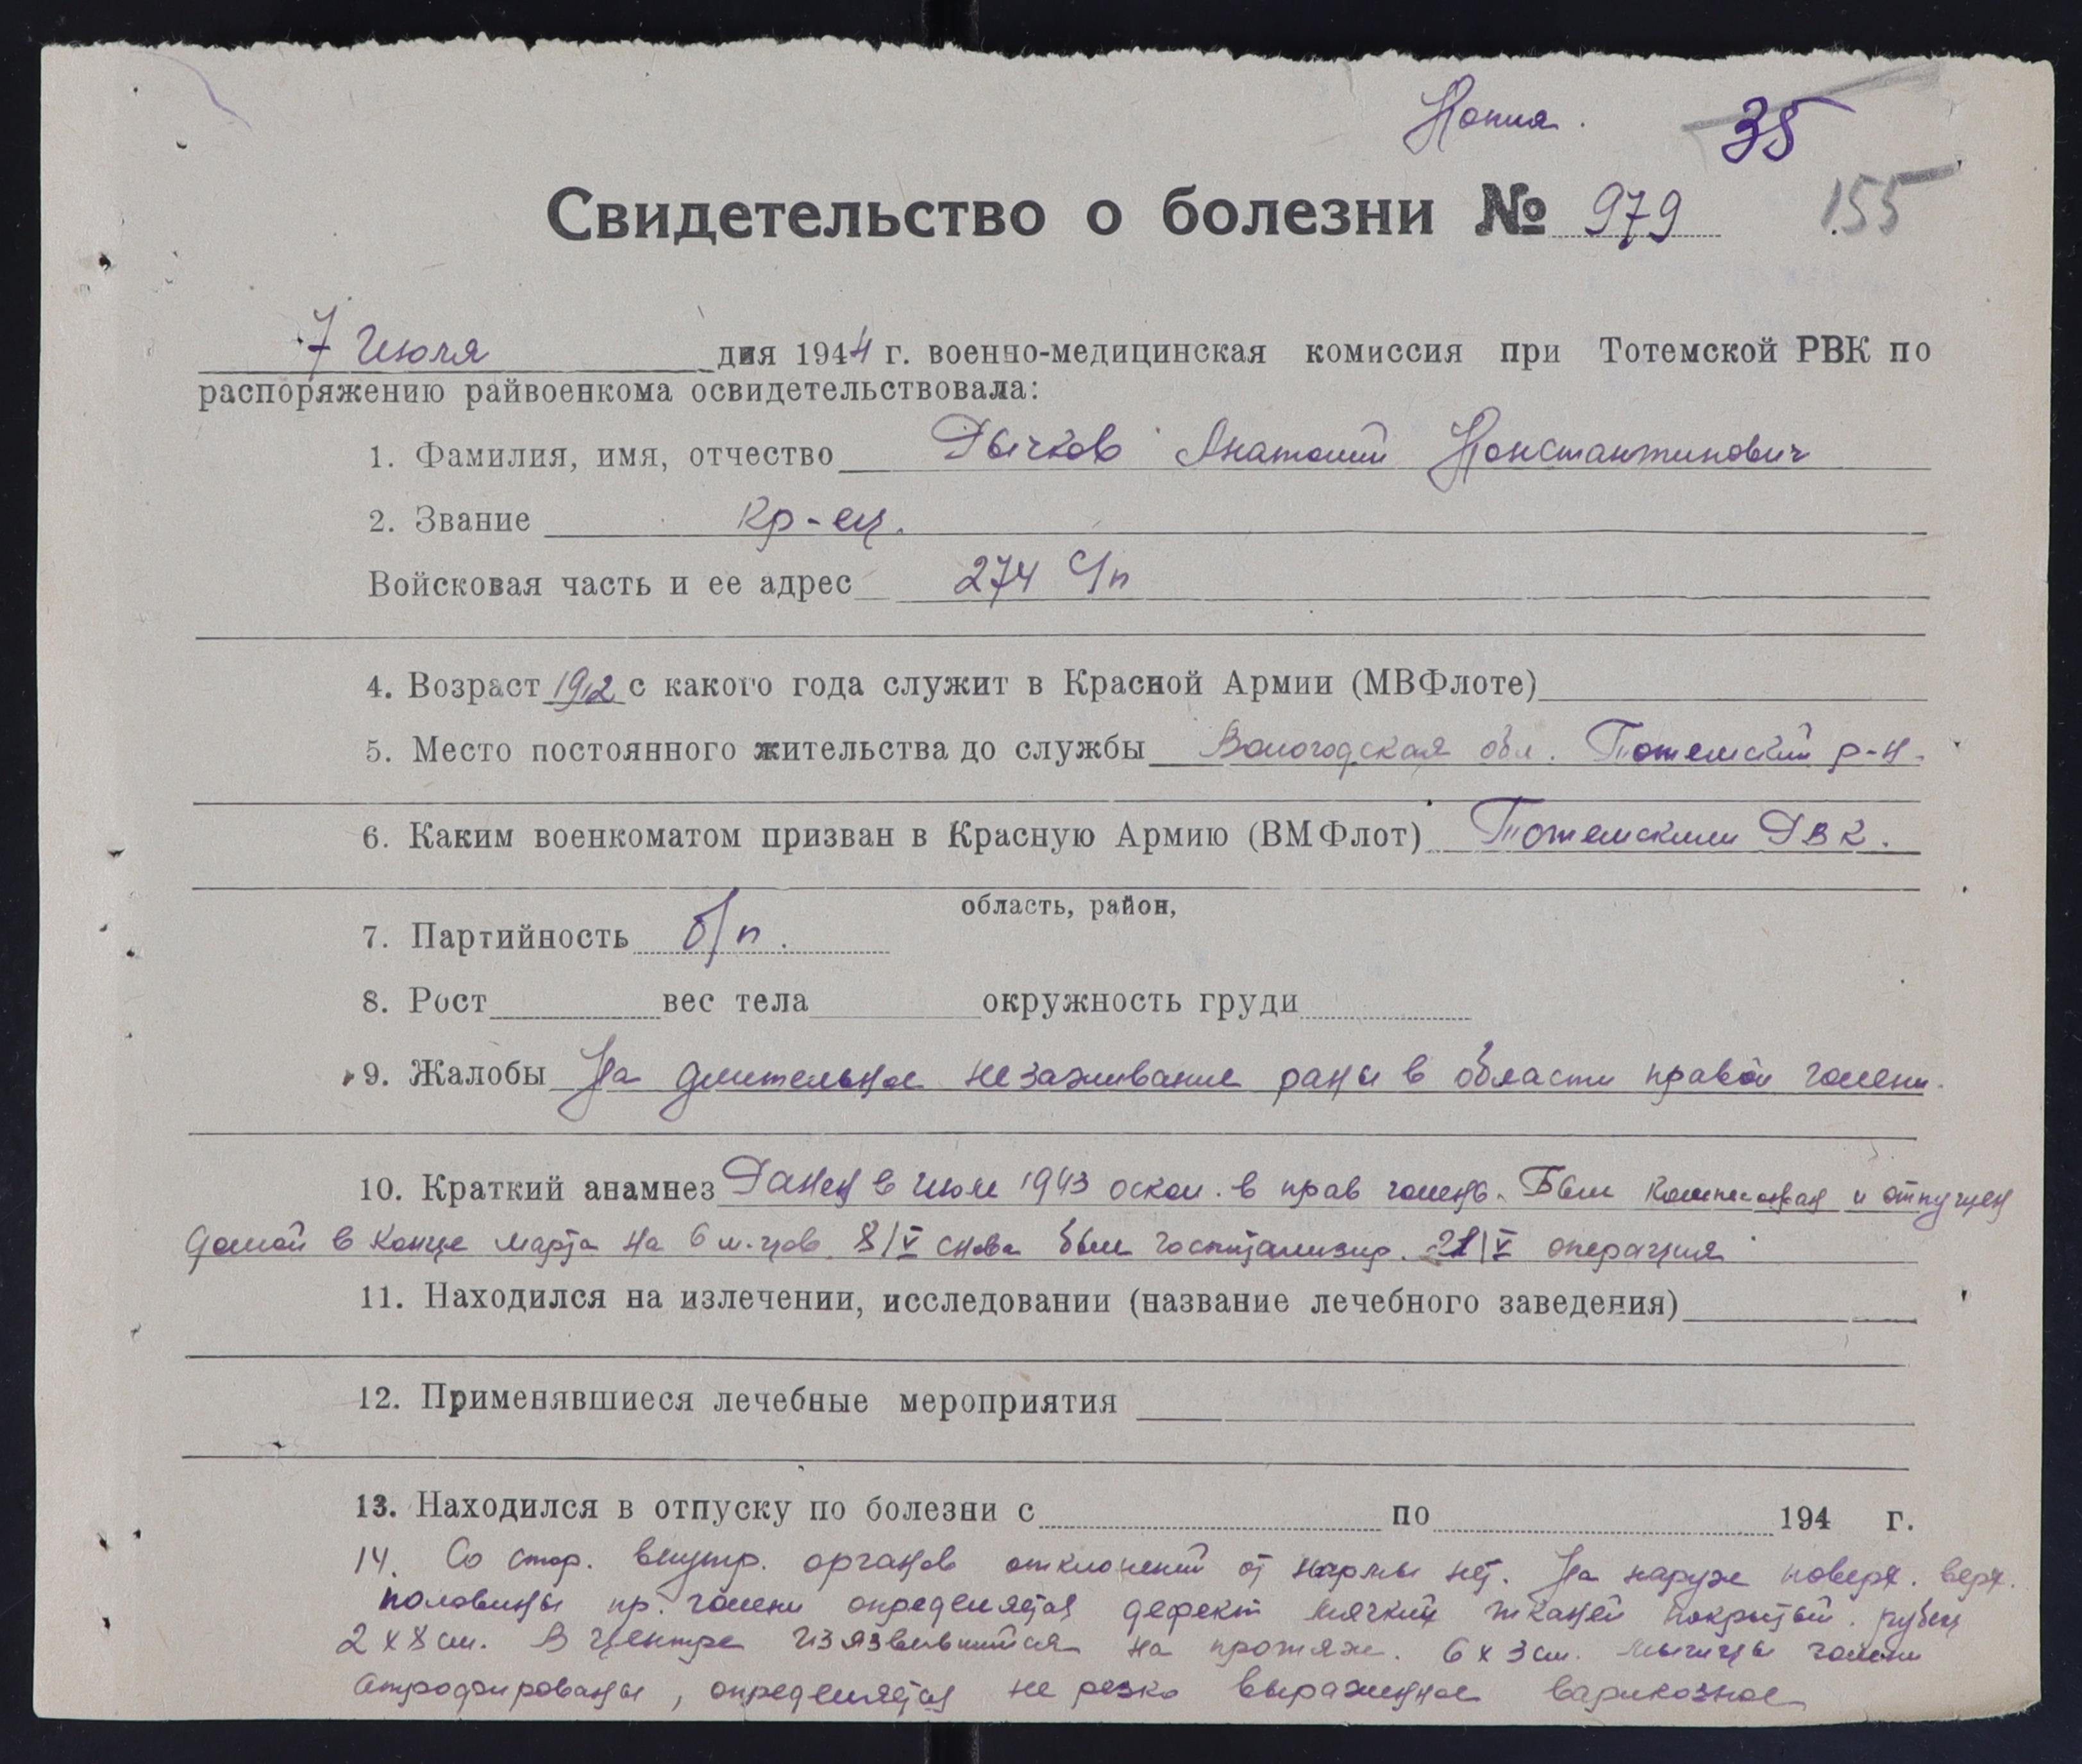 Копия.
35
Свидетельство о болезни № 979
155
7 Июля дня 1944 г. военно-медицинская комиссия при Тотемской РВК по
распоряжению райвоенкома освидетельствовала:
1. Фамилия, имя, отчество Рычков Анатолий Константинович
2. Звание кр-ец.
Войсковая часть и ее адрес 274 с/п
4. Возраст 1912 с какого года служит в Красной Армии (МВФлоте)
5. Место постоянного жительства до службы Вологодская обл. Тотемский р-н.
6. Каким военкоматом призван в Красную Армию (ВМФлот) Тотемским РВК.
область, район,
7. Партийность б/п.
8. Рост вес тела окружность груди
9. Жалобы На длительное незаживание раны в области правой голени.
10. Краткий анамнез Ранен в июле 1943 оскол. в прав голень. Был комиссован и отпущен
домой в конце марта на 6 м-цов. 8/V снова был госпитализир. 21/V операция
11. Находился на излечении, исследовании (название лечебного заведения)
12. Применявшиеся лечебные мероприятия
13. Находился в отпуску по болезни с по 194 г.
14. Со стор. внутр. органов отклонений от нормы нет. На наруж поверх. верх.
половины пр. голени определяется дефект мягких тканей покрытый. рубец
2 х 8 см. В центре изъязвившийся на протяж. 6 х 3 см. Мышцы голени
атрофированы, определяется не резко выраженное варикозное